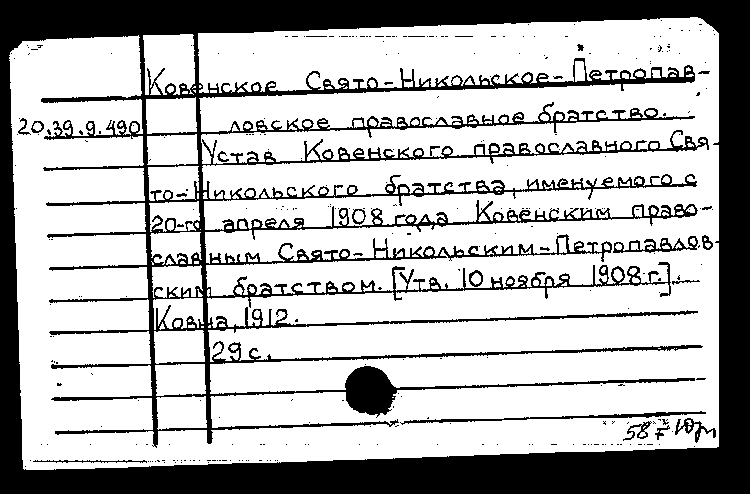 Ковенское Свято-Никольское-Петропав-
20.39.9.490 ловское православное братство.
Устав Ковенского православного Свя-
то-Никольского братства, именуемого с
20-го апреля 1908 года Ковенским право-
славным Свято-Никольским-Петропавлов-
ским братством. [Утв. 10 ноября 1908 г.].
Ковна, 1912.
29 с.
58